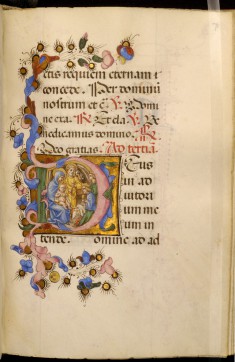 ctis requiem eternam i
concede. Per dominū
nostrum et c̄. V. Domi
ne exa. R. Et cla. V. B
nedicamus domino. R.
Deo gratias. Ad tertiā.
Deus
in ad
iutori
um me
um in
tende. omine ad ad